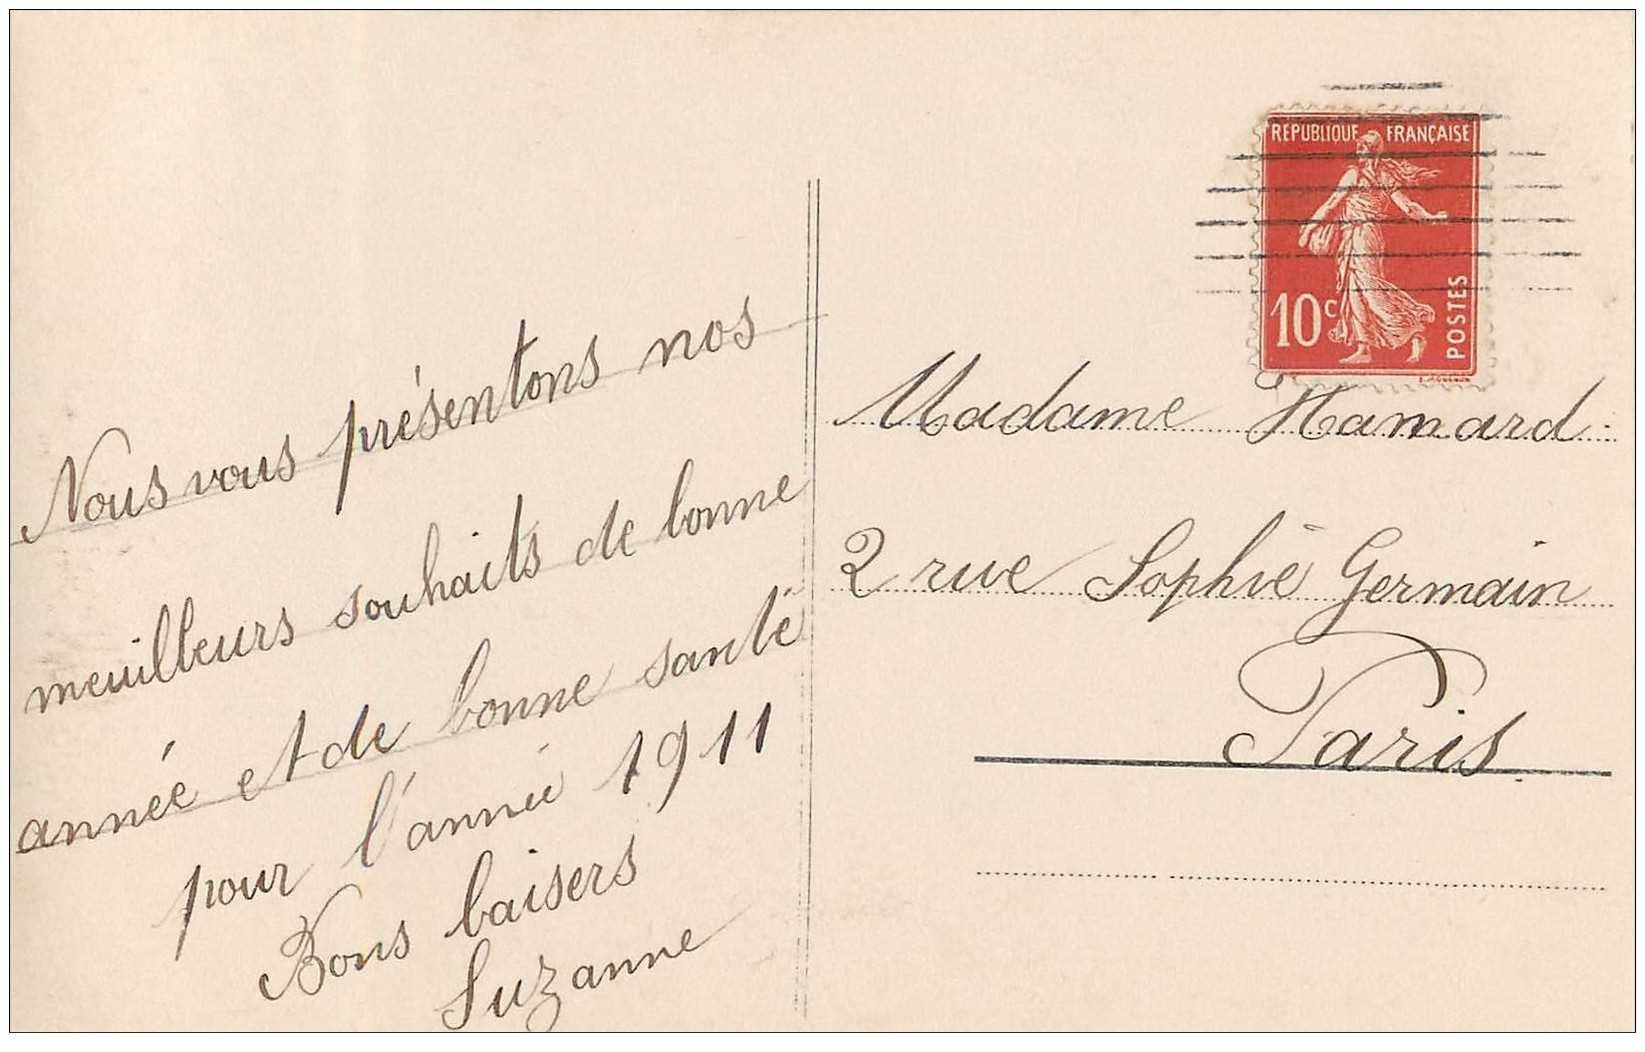 Nous vous présentons nos
meuilleurs souhaits de bonne
année et de bonne santé
pour l'année 1911
Bons baisers
Suzanne
REPUBLIQUE FRANÇAISE
10c
POSTES
Madame Hamard
2 rue Sophie Germain
Paris